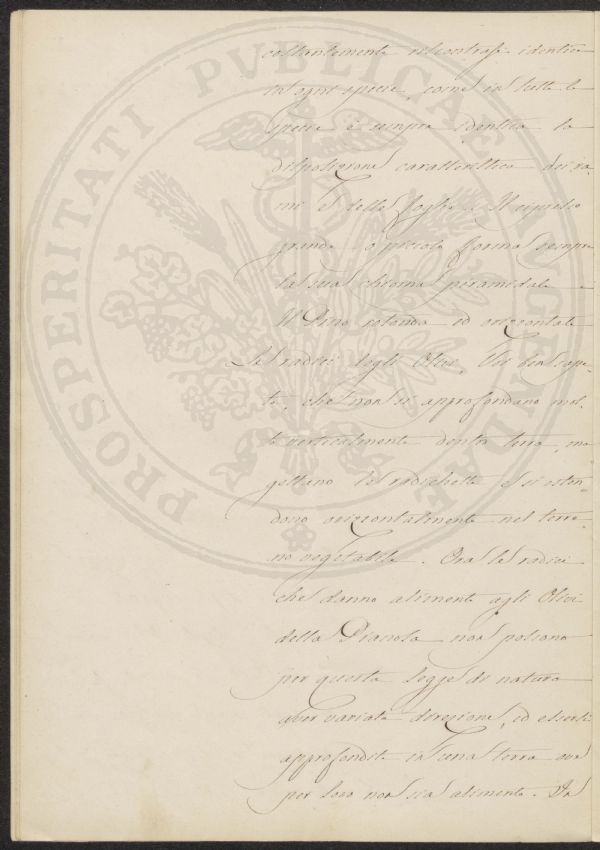 costantemente riscontrasi identica
in ogni specie, come in tutte le
specie è sempre identica la
disposizione caratteristica dei ra-
mi e delle foglie. Il cipresso
grande o piccolo forma sempre
la sua chioma piramidale
Il Pino rotonda ed orizzontale
Le radici degli Olivi, Voi ben sape-
te, che non si approfondano mol-
to verticalmente dentro terra, ma
gettano le radichette e si esten-
dono orizzontalmente nel terre-
no vegetabile. Ora le radici
che danno alimento agli Olivi
della Pianosa non possono
per questa legge di natura
aver variata direzione, ed essersi
approfondite in una terra ove
per loro non sia alimento. In
PROSPERITATI PUBLICAE AUGENDAE